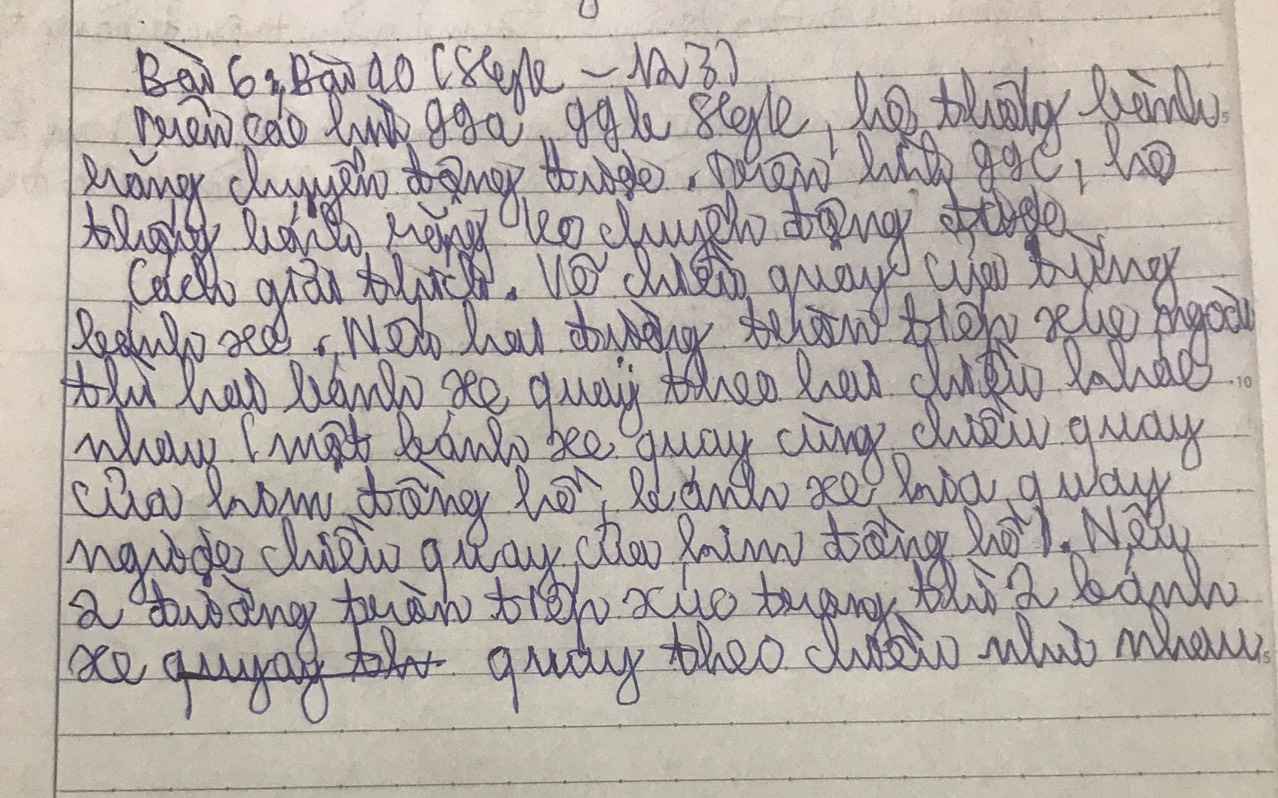 Bài 6: Bài 40 (SGK - 123)
Trên các hình 99a, 99b SGK, hệ thống bánh
răng chuyển động được. Trên hình 99c, hệ
thống bánh răng ko chuyển động được
Cách giải thích. Vẽ chiều quay của từng
bánh xe. Nếu hai đường tròn tiếp xúc ngoài
thì hai bánh xe quay theo hai chiều khác
nhau (một bánh xe quay cùng chiều quay
của kim đồng hồ, bánh xe kia quay
ngược chiều quay của kim đồng hồ). Nếu
2 đường tròn tiếp xúc trong thì 2 bánh
xe quay theo chiều như nhau